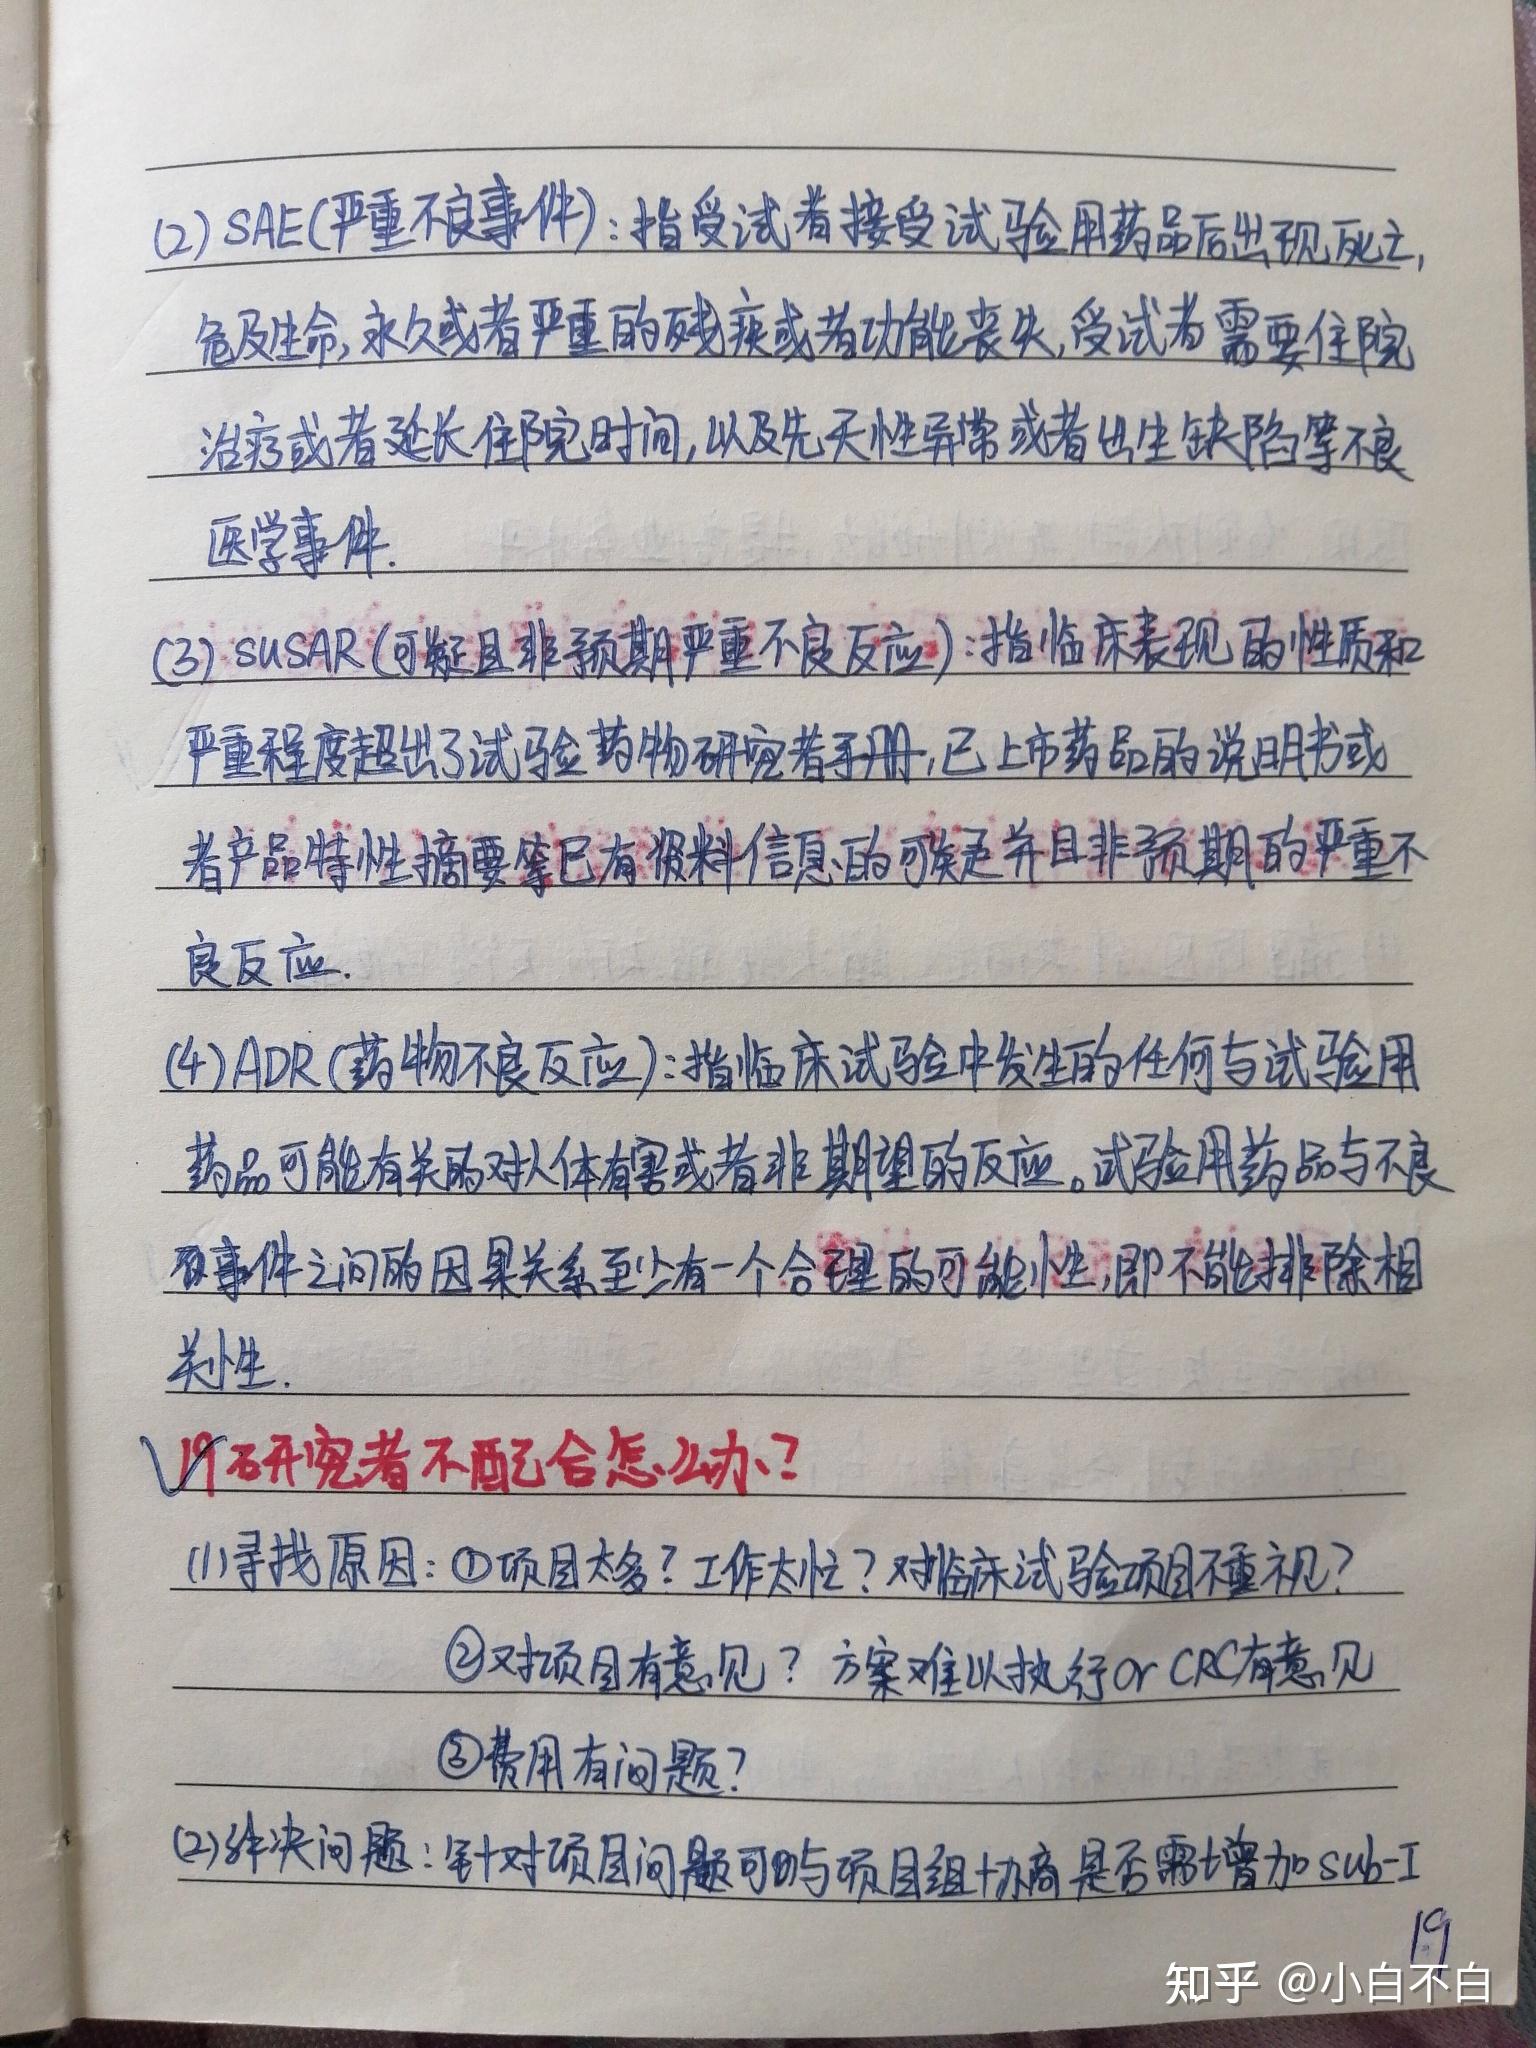 (2) SAE(严重不良事件):指受试者接受试验用药品后出现死亡,
危及生命,永久或者严重的残疾或者功能丧失,受试者需要住院
治疗或者延长住院时间,以及先天性异常或者出生缺陷等不良
医学事件.
(3) SUSAR(可疑且非预期严重不良反应):指临床表现的性质和
严重程度超出了试验药物研究者手册,已上市药品的说明书或
者产品特性摘要等已有资料信息的可疑并且非预期的严重不
良反应.
(4)ADR(药物不良反应):指临床试验中发生的任何与试验用
药品可能有关的对人体有害或者非期望的反应。试验用药品与不良
事件之间的因果关系至少有一个合理的可能性,即不能排除相
关性.
19研究者不配合怎么办?
(1)寻找原因:①项目太多?工作太忙?对临床试验项目不重视?
②对项目有意见?方案难以执行or CRC有意见
③费用有问题?
(2)解决问题:针对项目问题可与项目组协商是否需增加sub-I
19
知乎 @小白不白